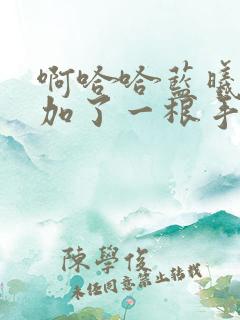 啊哈哈蓝曦
加了一根手
陳學俊
未经同意禁止转载